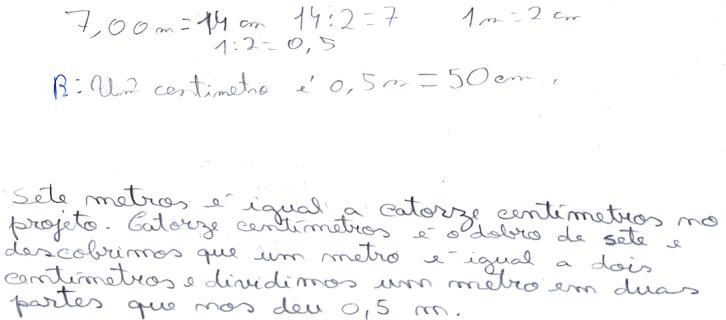 7,00 m = 14 cm 14 : 2 = 7 1 m = 2 cm
1 : 2 = 0,5
R: Um centimetro é 0,5 m = 50 cm.
Sete metros é igual a catorze centímetros no
projeto. Catorze centímetros é o dobro de sete e
descobrimos que um metro é igual a dois
centímetros e dividimos um metro em duas
partes que nos deu 0,5 m.